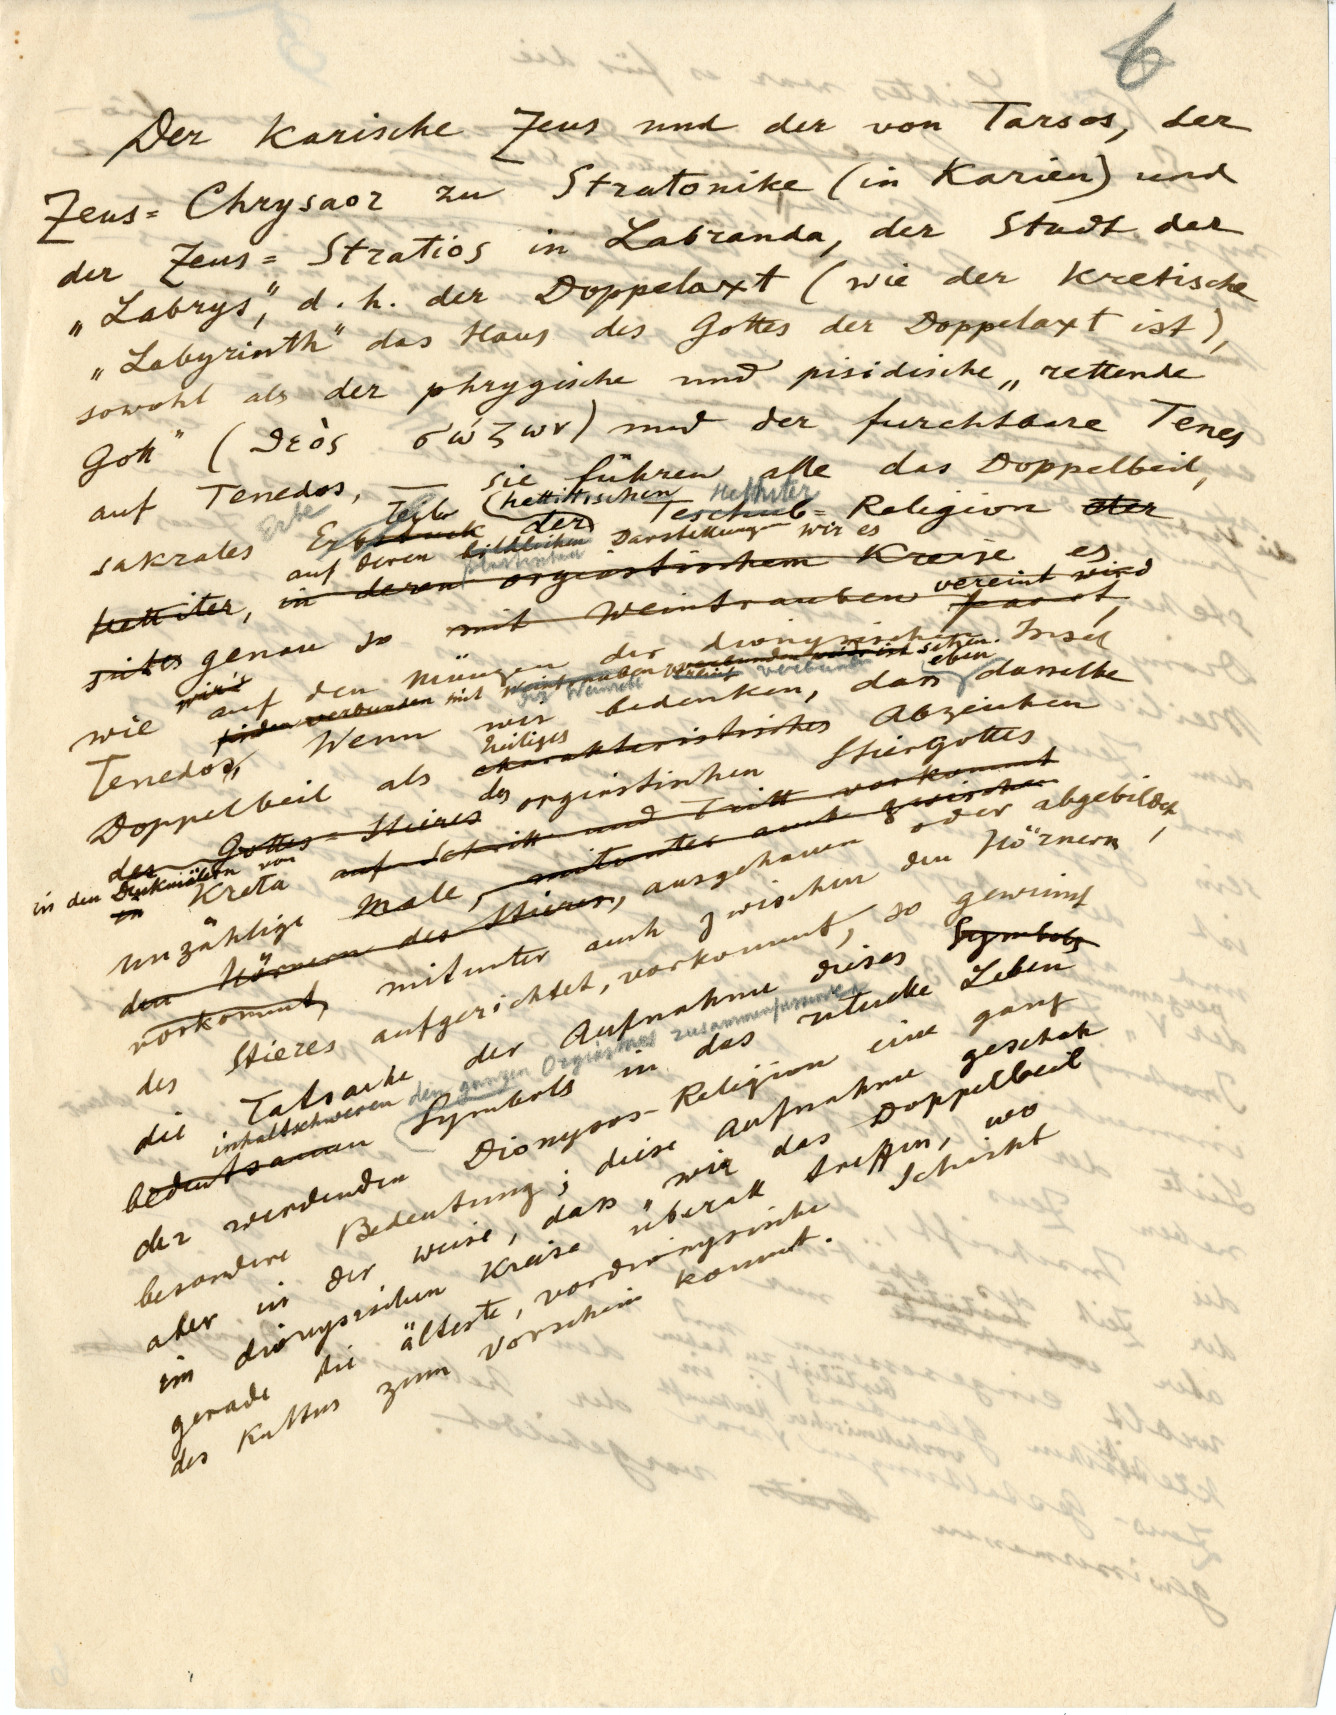 6
Der Karische Zeus und der von Tarsos, der
Zeus= Chrysaor zu Stratonike (in Karien) und
der Zeus= Stratios in Labranda, der Stadt der
„Labrys", d. h. der Doppelaxt (wie der Kretische
„Labyrinth" das Haus des Gottes der Doppelaxt ist),
sowohl als der phrygische und pisidische „rettende
Gott" (θεὸς σώζων) und der furchtbare Tenes
auf Tenedos, — sie führen alle das Doppelbeil,
Erbe Teile (hettitischen Hethiter
sakrales Erbstück der Teschub= Religion der
auf deren bildlichen Darstellungen wir es
plastischen
Hettiter, in deren orgiastischem Kreise es
vereint wird
genau so mit Weintrauben paart,
wie wir's auf den Münzen der dionysischen Insel
finden verbunden mit Weintrauben vereint sehen.
der Weinrebe verbunden eben
Tenedos, Wenn wir bedenken, dass dasselbe
heiliges
Doppelbeil als charakteristisches Abzeichen
des
des Gottes= Stieres orgiastischen Stiergottes
in den Denkmälern von
in Kreta auf Schritt und Tritt vorkommt
unzählige Male, mitunter auch zwischen
den Hörnern des Stieres, ausgehauen oder abgebildet,
vorkommt, mitunter auch zwischen den Hörnern
des Stieres aufgerichtet, vorkommt, so gewinnt
die Tatsache der Aufnahme dieses Symbols
inhaltschweren den ganzen Orgiasmus zusammenfassenden
bedeutsamen Symbols in das rituelle Leben
der werdenden Dionysos-Religion eine ganz
besondere Bedeutung; diese Aufnahme geschah
aber in der Weise, dass wir das Doppelbeil
im dionysischen Kreise überall treffen, wo
gerade die älteste, vordionysische Schicht
des Kultus zum Vorschein kommt.